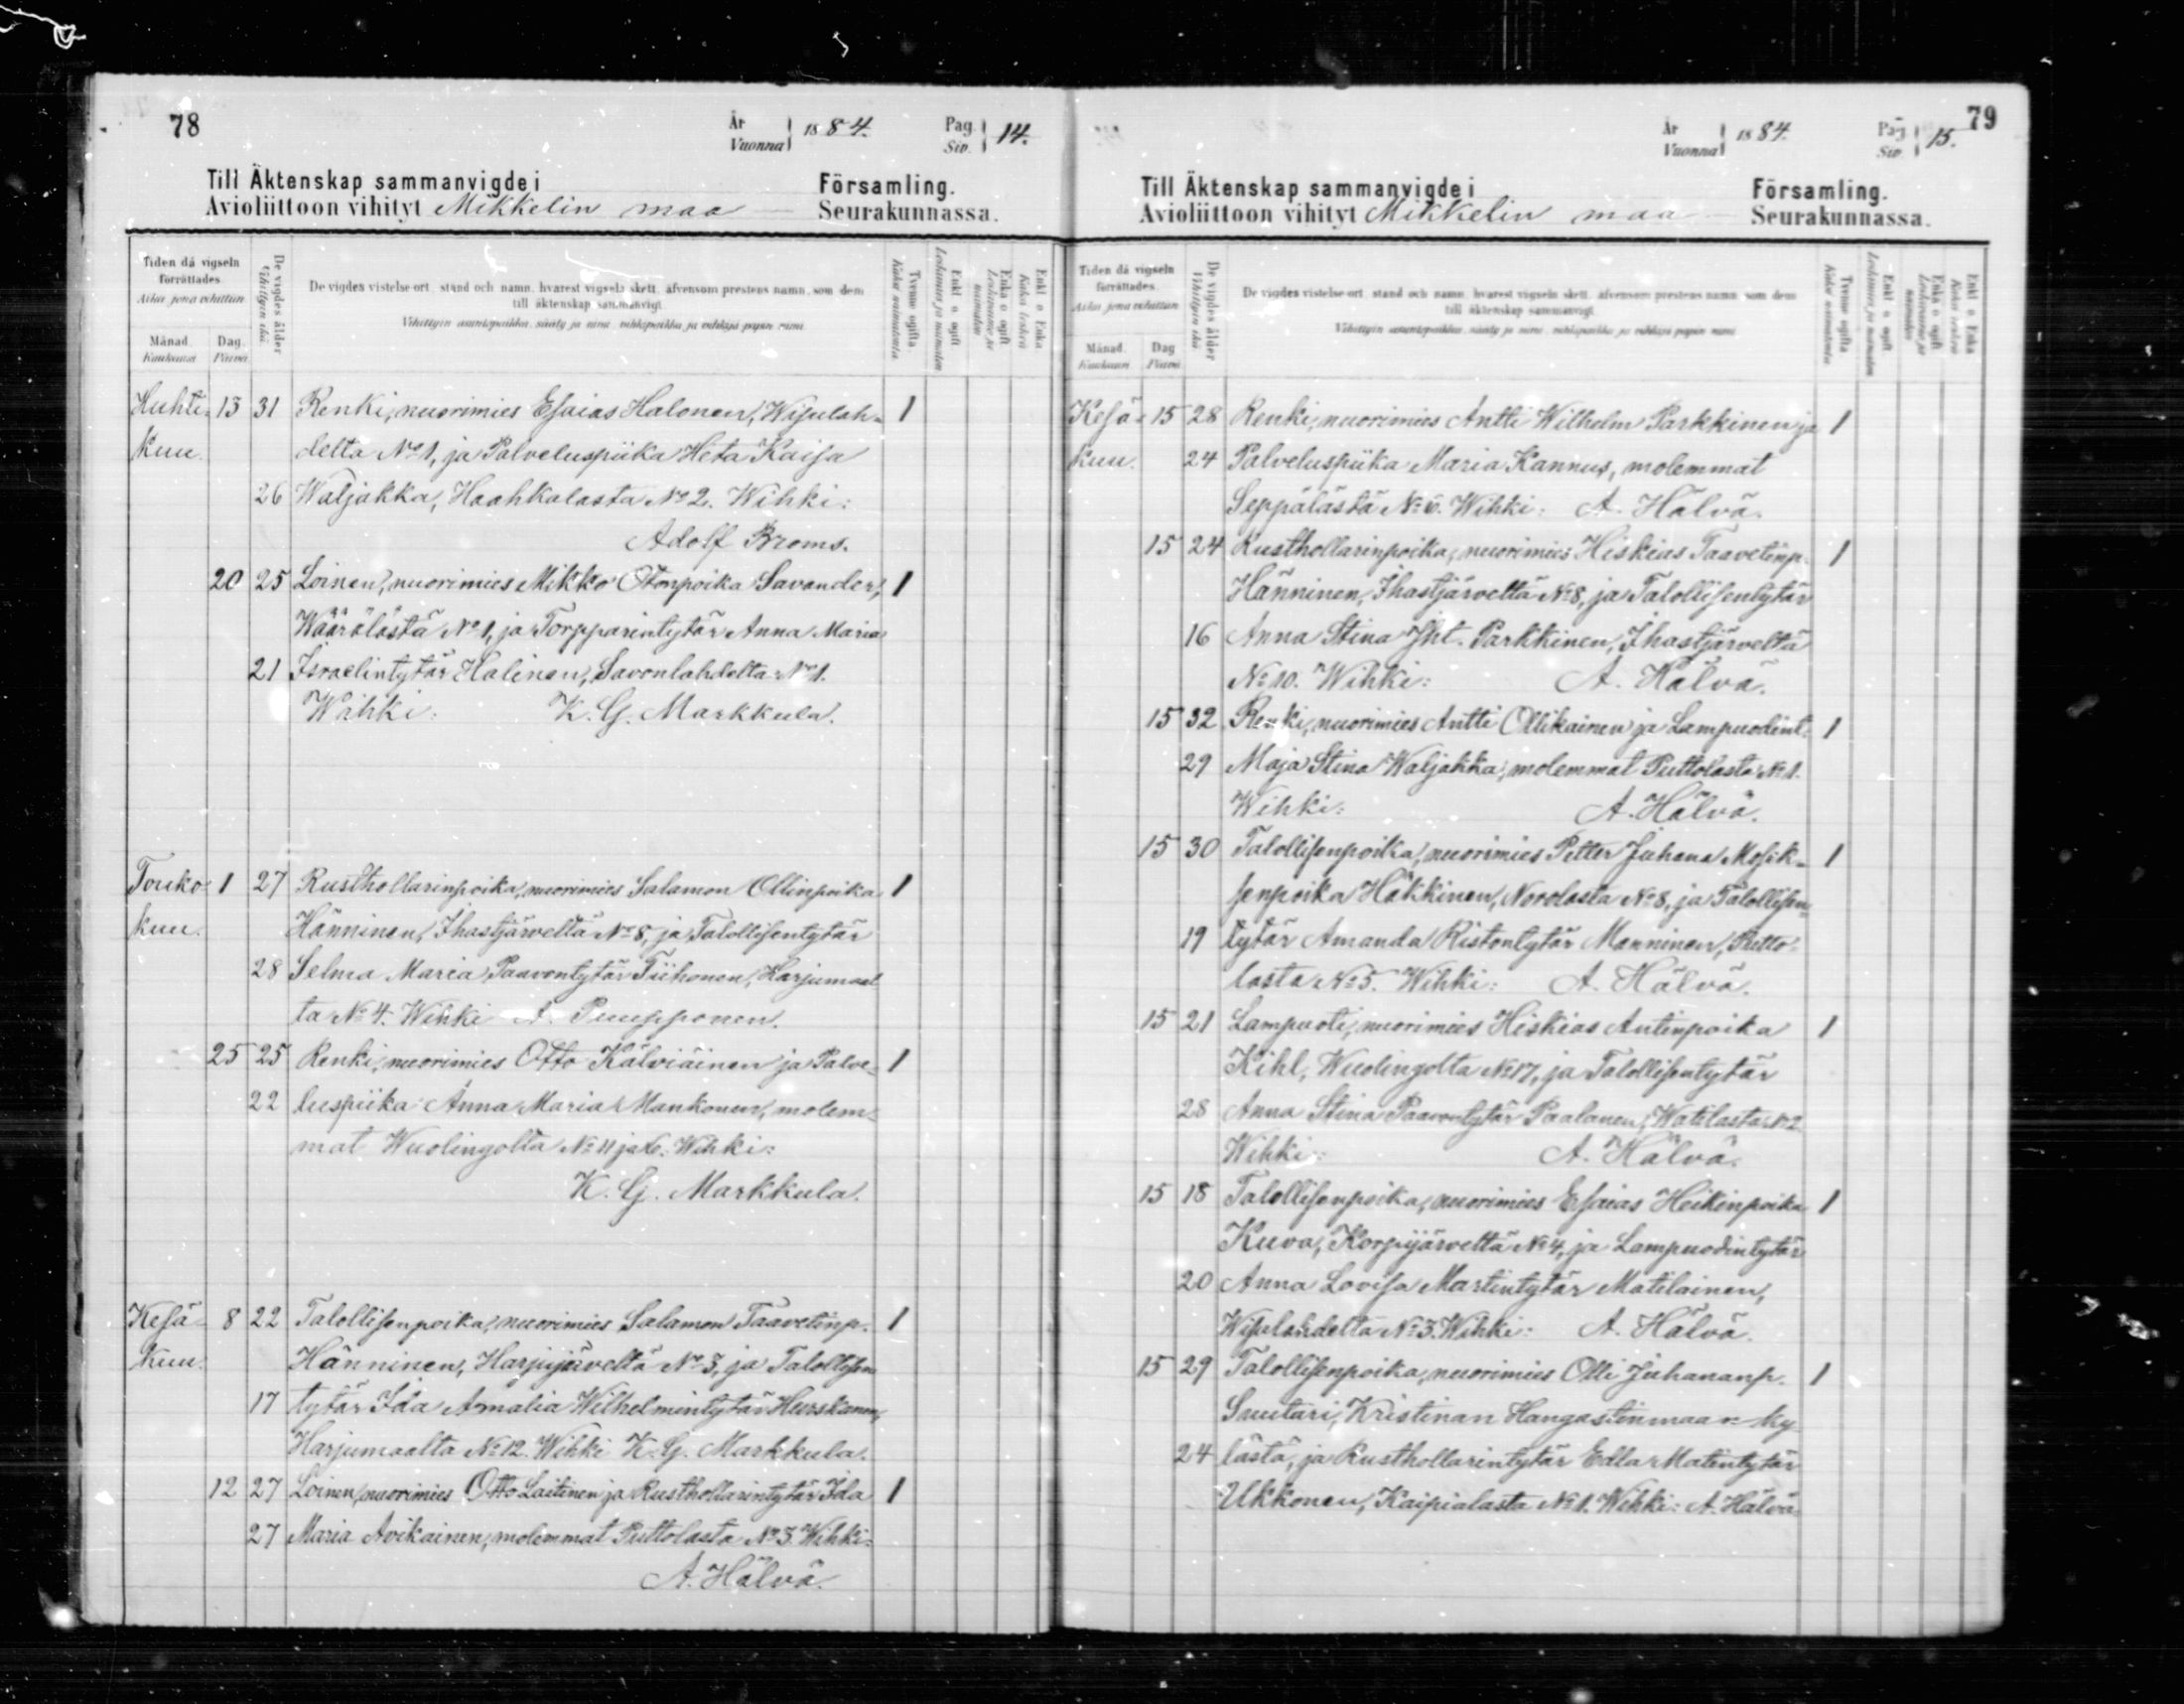 78
År
Vuonna
1884.
Pag.
Siv.
14.
Till Äktenskap sammanvigde i Församling.
Avioliittoon vihityt Mikkelin maa Seurakunnassa.
Tiden då vigseln förrättades.
Aika, jona vihittiin
Månad.
Kuukausi
Dag.
Päivä
De vigdes ålder
Vihittyin ikä
De vigdes vistelse-ort, stånd och namn, hvarest vigseln skett, äfvensom prestens namn, som dem
till äktenskap sammanvigt.
Vihittyin asuntopaikka, sääty ja nimi, vihkipaikka ja vihkijä papin nimi
Tvenne ogifta.
Kaksi naimatonta
Enkl. o. ogift
Leskimies ja naimaton
Enka o ogift
Leskivaimo ja naimaton
Enkl o Enka
Kaksi leskeä
Huhti- 13 31 Renki, nuorimies Esaias Halonen, Wisulah- 1
kuu. delta No 1, ja Palveluspiika Heta Kaisa
26 Waljakka, Haahkalasta No 2. Wihki:
Adolf Broms.
20 25 Loinen, nuorimies Mikko Otonpoika Savander, 1
Wäärälästä No 1, ja Torpparintytär Anna Maria
21 Israelintytär Halinen, Savonlahdelta No 1.
Wihki: K. G. Markkula.
Touko- 1 27 Rusthollarinpoika, nuorimies Salamon Ollinpoika 1
kuu. Hänninen, Ihastjärveltä No 8, ja Talollisentytär
28 Selma Maria Paavontytär Tiihonen, Harjumaal
ta No 4. Wihki A. Puupponen.
25 25 Renki, nuorimies Otto Kälviäinen ja Palve- 1
22 luspiika Anna Maria Mankonen, molem-
mat Wuolingolta No 11 ja 6. Wihki:
K. G. Markkula.
Kesä- 8 22 Talollisenpoika, nuorimies Salamon Taavetinp. 1
kuu. Hänninen, Harjujärveltä No 3, ja Talollisen
17 tytär Ida Amalia Wilhelmintytär Hurskanen,
Harjumaalta No 12. Wihki K. G. Markkula.
12 27 Loinen, nuorimies Otto Laitinen ja Rusthollarintytär Ida 1
27 Maria Avikainen, molemmat Puttolasta No 3. Wihki:
A. Hälvä.
79
År
Vuonna
1884.
Pag
Siv
15.
Till Äktenskap sammanvigde i Församling.
Avioliittoon vihityt Mikkelin maa Seurakunnassa.
Tiden då vigseln förrättades.
Aika, jona vihittiin
Månad.
Kuukausi
Dag
Päivä
De vigdes ålder
Vihittyin ikä
De vigdes vistelse-ort, stånd och namn, hvarest vigseln skett, äfvensom prestens namn, som dem
till äktenskap sammanvigt.
Vihittyin asuntopaikka, sääty ja nimi, vihkipaikka ja vihkijä papin nimi
Tvenne ogifta
Kaksi naimatonta
Enkl o ogift
Leskimies ja naimaton
Enka o ogift
Leskivaimo ja naimaton
Enkl o Enka
Kaksi leskeä
Kesä- 15 28 Renki, nuorimies Antti Wilhelm Parkkinen ja 1
kuu. 24 Palveluspiika Maria Kannus, molemmat
Seppälästä No 6. Wihki: A. Hälvä.
15 24 Rusthollarinpoika, nuorimies Hiskias Taavetinp. 1
Hänninen, Ihastjärveltä No 8, ja Talollisentytär
16 Anna Stina Parkkinen, Ihastjärveltä
No 10. Wihki: A. Hälvä.
15 32 Renki, nuorimies Antti Ollikainen ja Lampuodint. 1
29 Maja Stina Waljakka, molemmat Puttolasta No 1.
Wihki: A. Hälvä.
15 30 Talollisenpoika, nuorimies Petter Juhana 1
senpoika Häkkinen, Norolasta No 8, ja Talollisen-
19 tytär Amanda Ristontytär Manninen, Putto-
lasta No 5. Wihki: A. Hälvä.
15 21 Lampuoti, nuorimies Hiskias Antinpoika 1
Kihl, Wuolingolta No 17, ja Talollisentytär
28 Anna Stina Paavontytär Paalanen, Watilasta No 2
Wihki: A. Hälvä.
15 18 Talollisenpoika, nuorimies Esaias Heikinpoika 1
Kuva, Korpijärveltä No 4, ja Lampuodintytär
20 Anna Lovisa Martintytär Matilainen,
Wisulahdelta No 3. Wihki: A. Hälvä.
15 29 Talollisenpoika, nuorimies Olli Juhananp. 1
Suutari, Kristinan Hangastinmaan ky
24 lästä, ja Rusthollarintytär Edla Matintytär
Ukkonen, Kaipialasta No 1. Wihki: A. Hälvä.